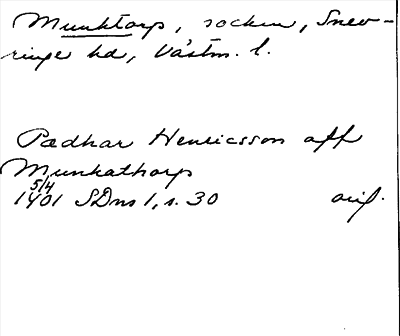 Munktorp, socken, Snev-
ringe hd, Västm. l.
Pædhar Henricsson aff
Munkathorp
5/4
1401 SDns 1, s. 30 orig.